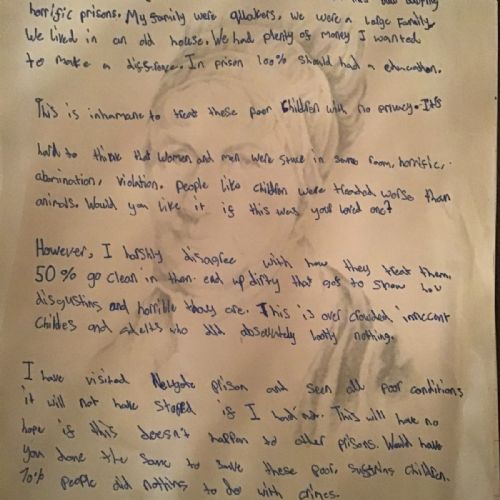 horrific prisons. My family were quakers, we were a large family
We lived in an old house. We had plenty of money I wanted
to make a difference. In prison 100% should had a education.
This is inhumane to treat these poor children with no privacy. It's
hard to think that women and men were stuck in same room, horrific,
abomination, violation. People like children were treated worse than
animals. Would you like it if this was your loved one?
However, I harshly disagree with how they treat them.
50% go clean in then end up dirty that goes to show how
disgusting and horrible they are. This is over crowded innocent
childes and adults who did absolutely nothing.
I have visited Newgate prison and seen all poor conditions
it will not have stoped if I had not. This will have no
hope if this doesn't happen to other prisons. Would have
you done the same to save these poor, children.
70% people did nothing to do with crimes.